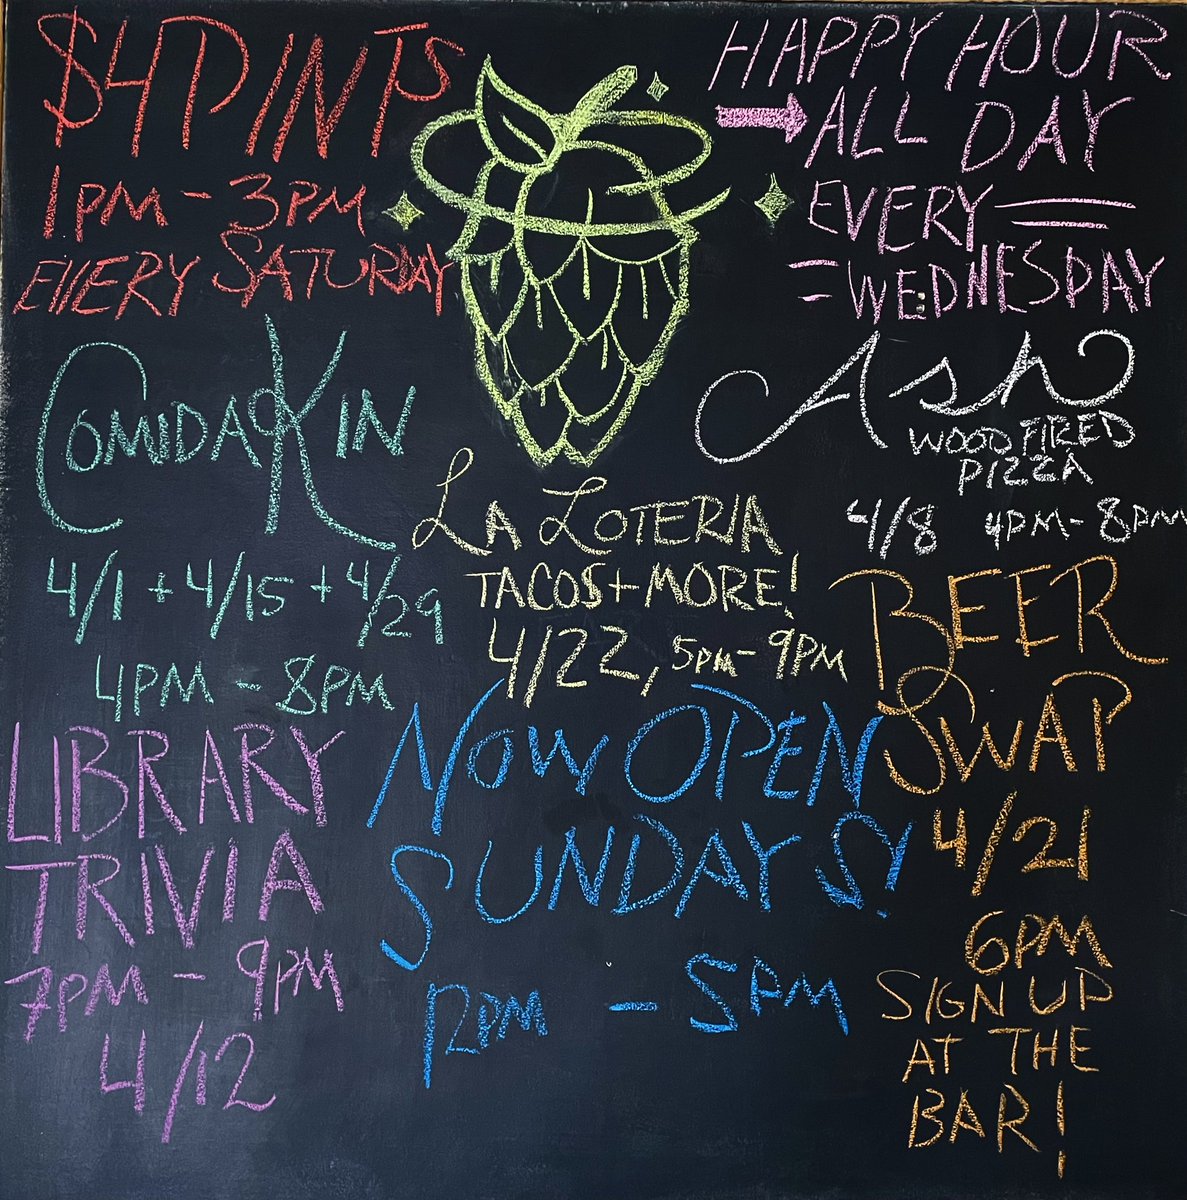 $4 PINTS
1PM - 3PM
EVERY SATURDAY
HAPPY HOUR
ALL DAY
EVERY
WEDNESDAY
COMIDAKIN
4/1 + 4/15 + 4/29
4PM - 8PM
Ash
WOOD FIRED
PIZZA
4/8 4PM - 8PM
LA LOTERIA
TACOS + MORE!
4/22, 5PM - 9PM
BEER
SWAP
4/21
6PM
SIGN UP
AT THE
BAR!
LIBRARY
TRIVIA
7PM - 9PM
4/12
NOW OPEN
SUNDAYS!
12PM - 5PM